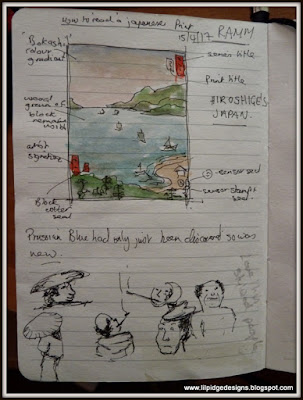 How to read a Japanese Print
15/4/17 RAMM
"Bokashi"
colour
gradient
series title
Print title
HIROSHIGE'S
JAPAN.
artist
signature
censor seal
censor stamp +
seal.
Block
cutter
seal
Prussian Blue had only just been discovered so was
new.
www.lilpidgedesigns.blogspot.com